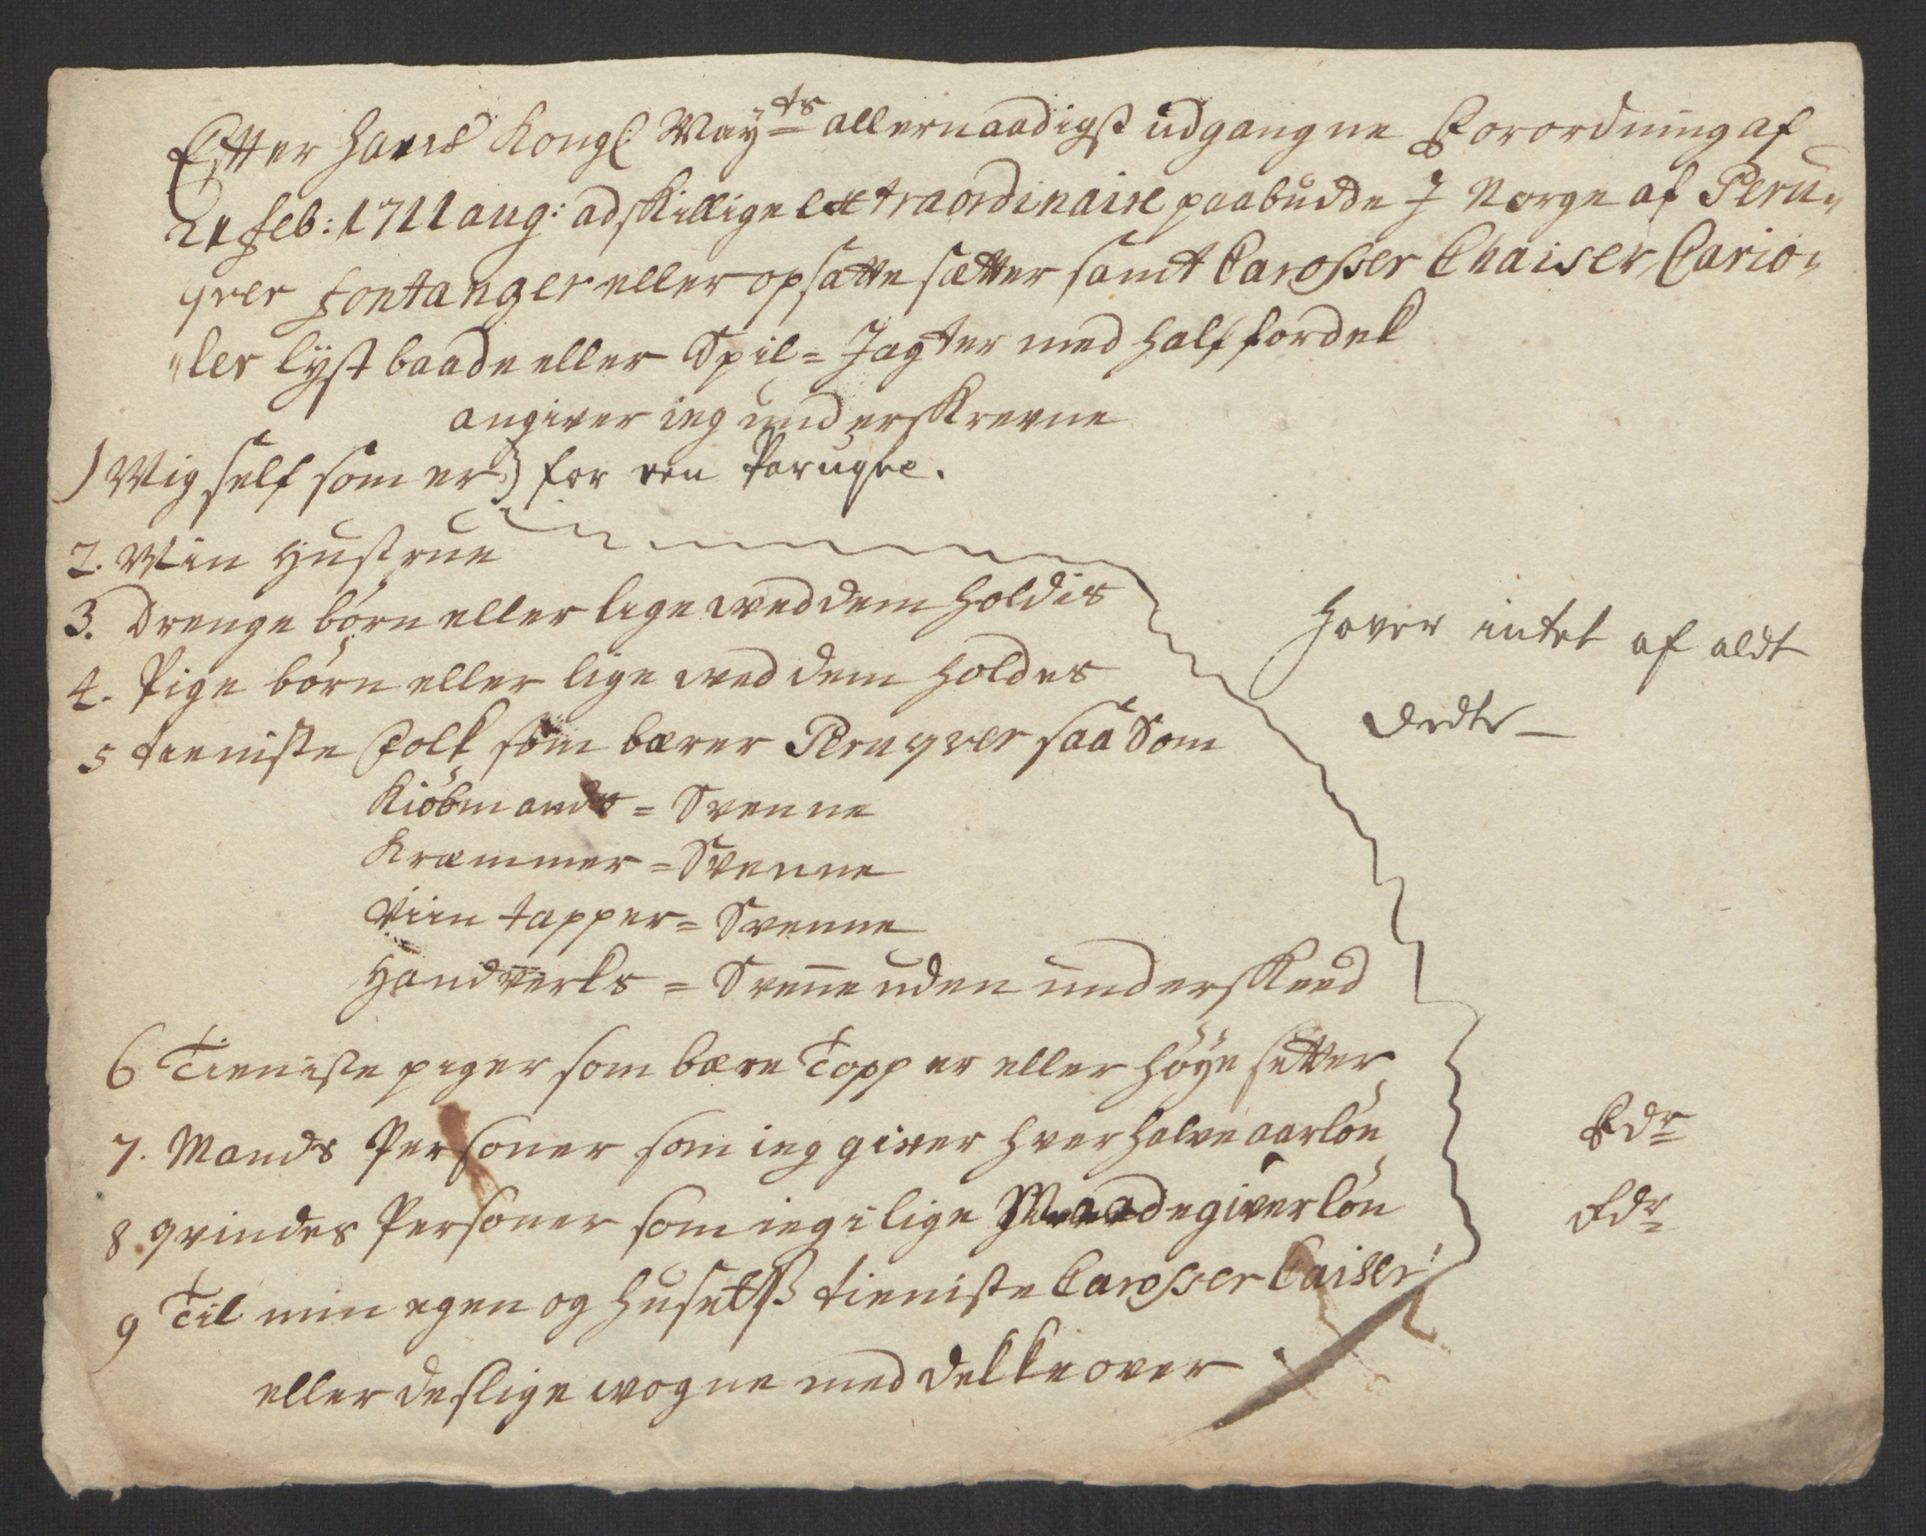 Efter hans Kongl May^ts allernaadigst udgangne Forordning af
21 Feb: 1711 ang: adskillige extraordinaire paabudde J Norge af Peru-
qver Fontanger eller opsatte sætter samt Carosser Chaiser, Cario-
ler lyst baade eller Spil = Jagter med half fordek
angiver ieg underskrevne
1) Mig self som er) for een Paruqve.
2. Min Hustrue
3. Drenge børn eller lige wed dem holdis
4. Pige børn eller lige wed dem holdes
5 tieniste Folk som bærer Peruqver saa Som
Kiøbmands = Svenne
Kræmmer = Svenne
Viin tapper = Svenne
Handverks = Svenne uden underskeed
6 Tieniste piger som bære Topper eller høye setter
7. Mands Personer som ieg giver hver halve aar løn
8. qvindes Personer som ieg i lige Maade giver løn
9 Til min egen og husetß tieniste Carosser Caiser
eller deslige wogne med dekke over
haver intet af aldt
dedte